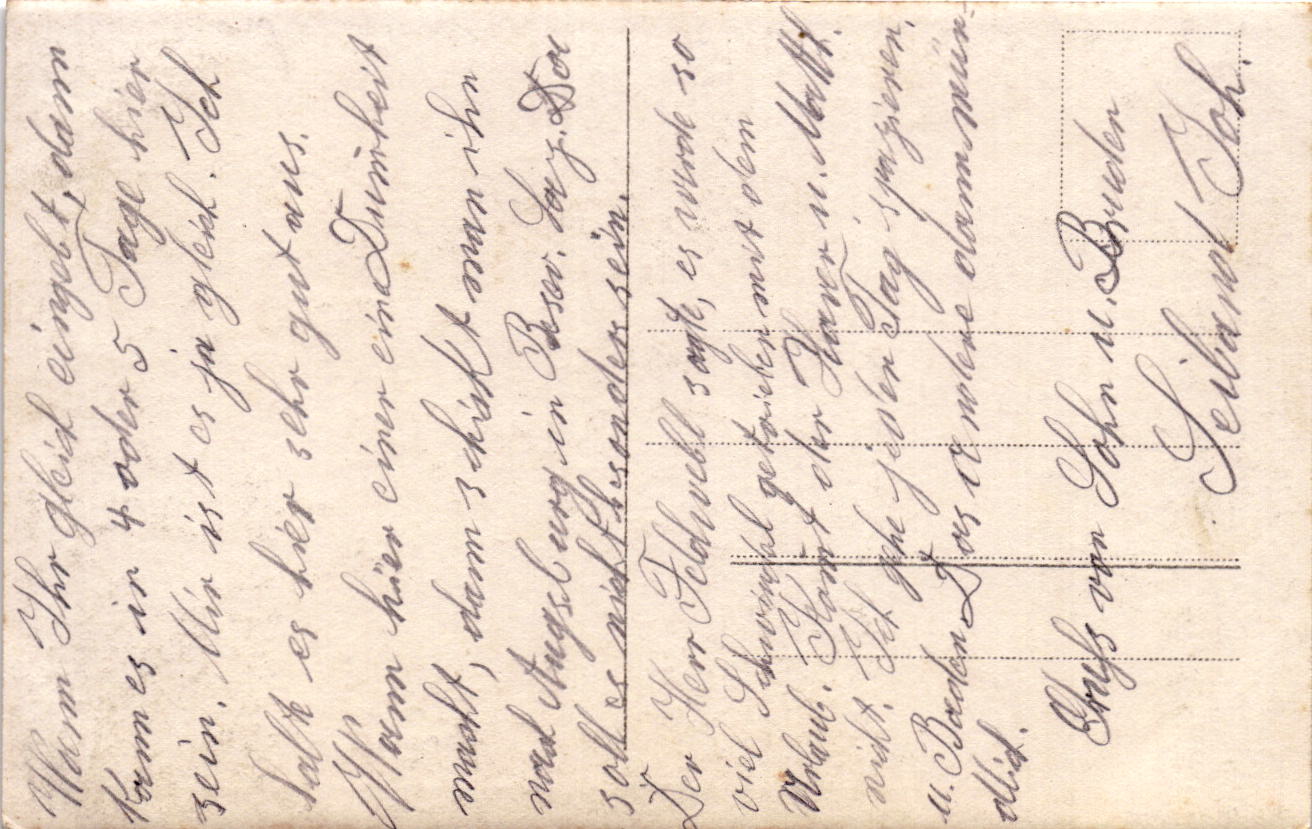 Wann Ihr gleich eingebt, dann
kann es in 4 oder 5 Tage hier
sein. Mir ist es ja gleich. Ich
halte es hier sehr gut aus.
Wann hier einer eine Dumheit
macht, dann schickt man ihn
nach Augsburg in Reserv. Laz. Da
soll es nicht besonders sein.
Der Herr Feldwebl sagte, es wurde so
viel Schwindel getrieben mit dem
Urlaub. Kommt der Xaver u. Math.
nicht. Ich gehe jeden Tag spazieren.
u. Baden Das andere dann mün-
dlich.
Gruß von Sohn u. Bruder
Joh.